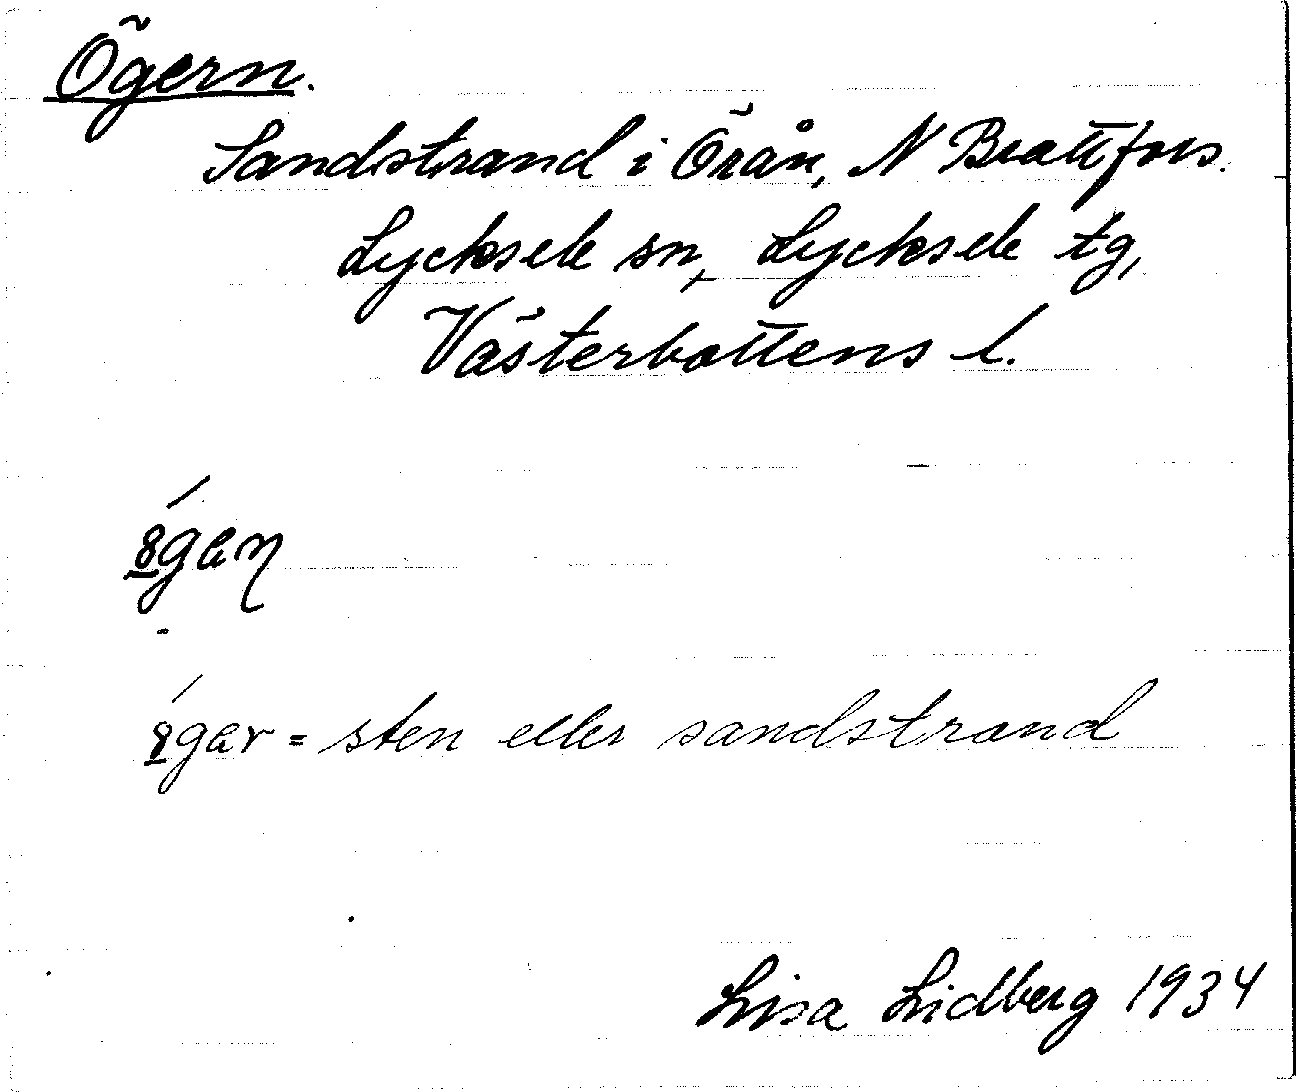 Ögern.
Sandstrand i Örån, N Brattfors.
Lycksele sn, Lycksele tg,
Västerbottens l.
= sten eller sandstrand
Lisa Lidberg 1934